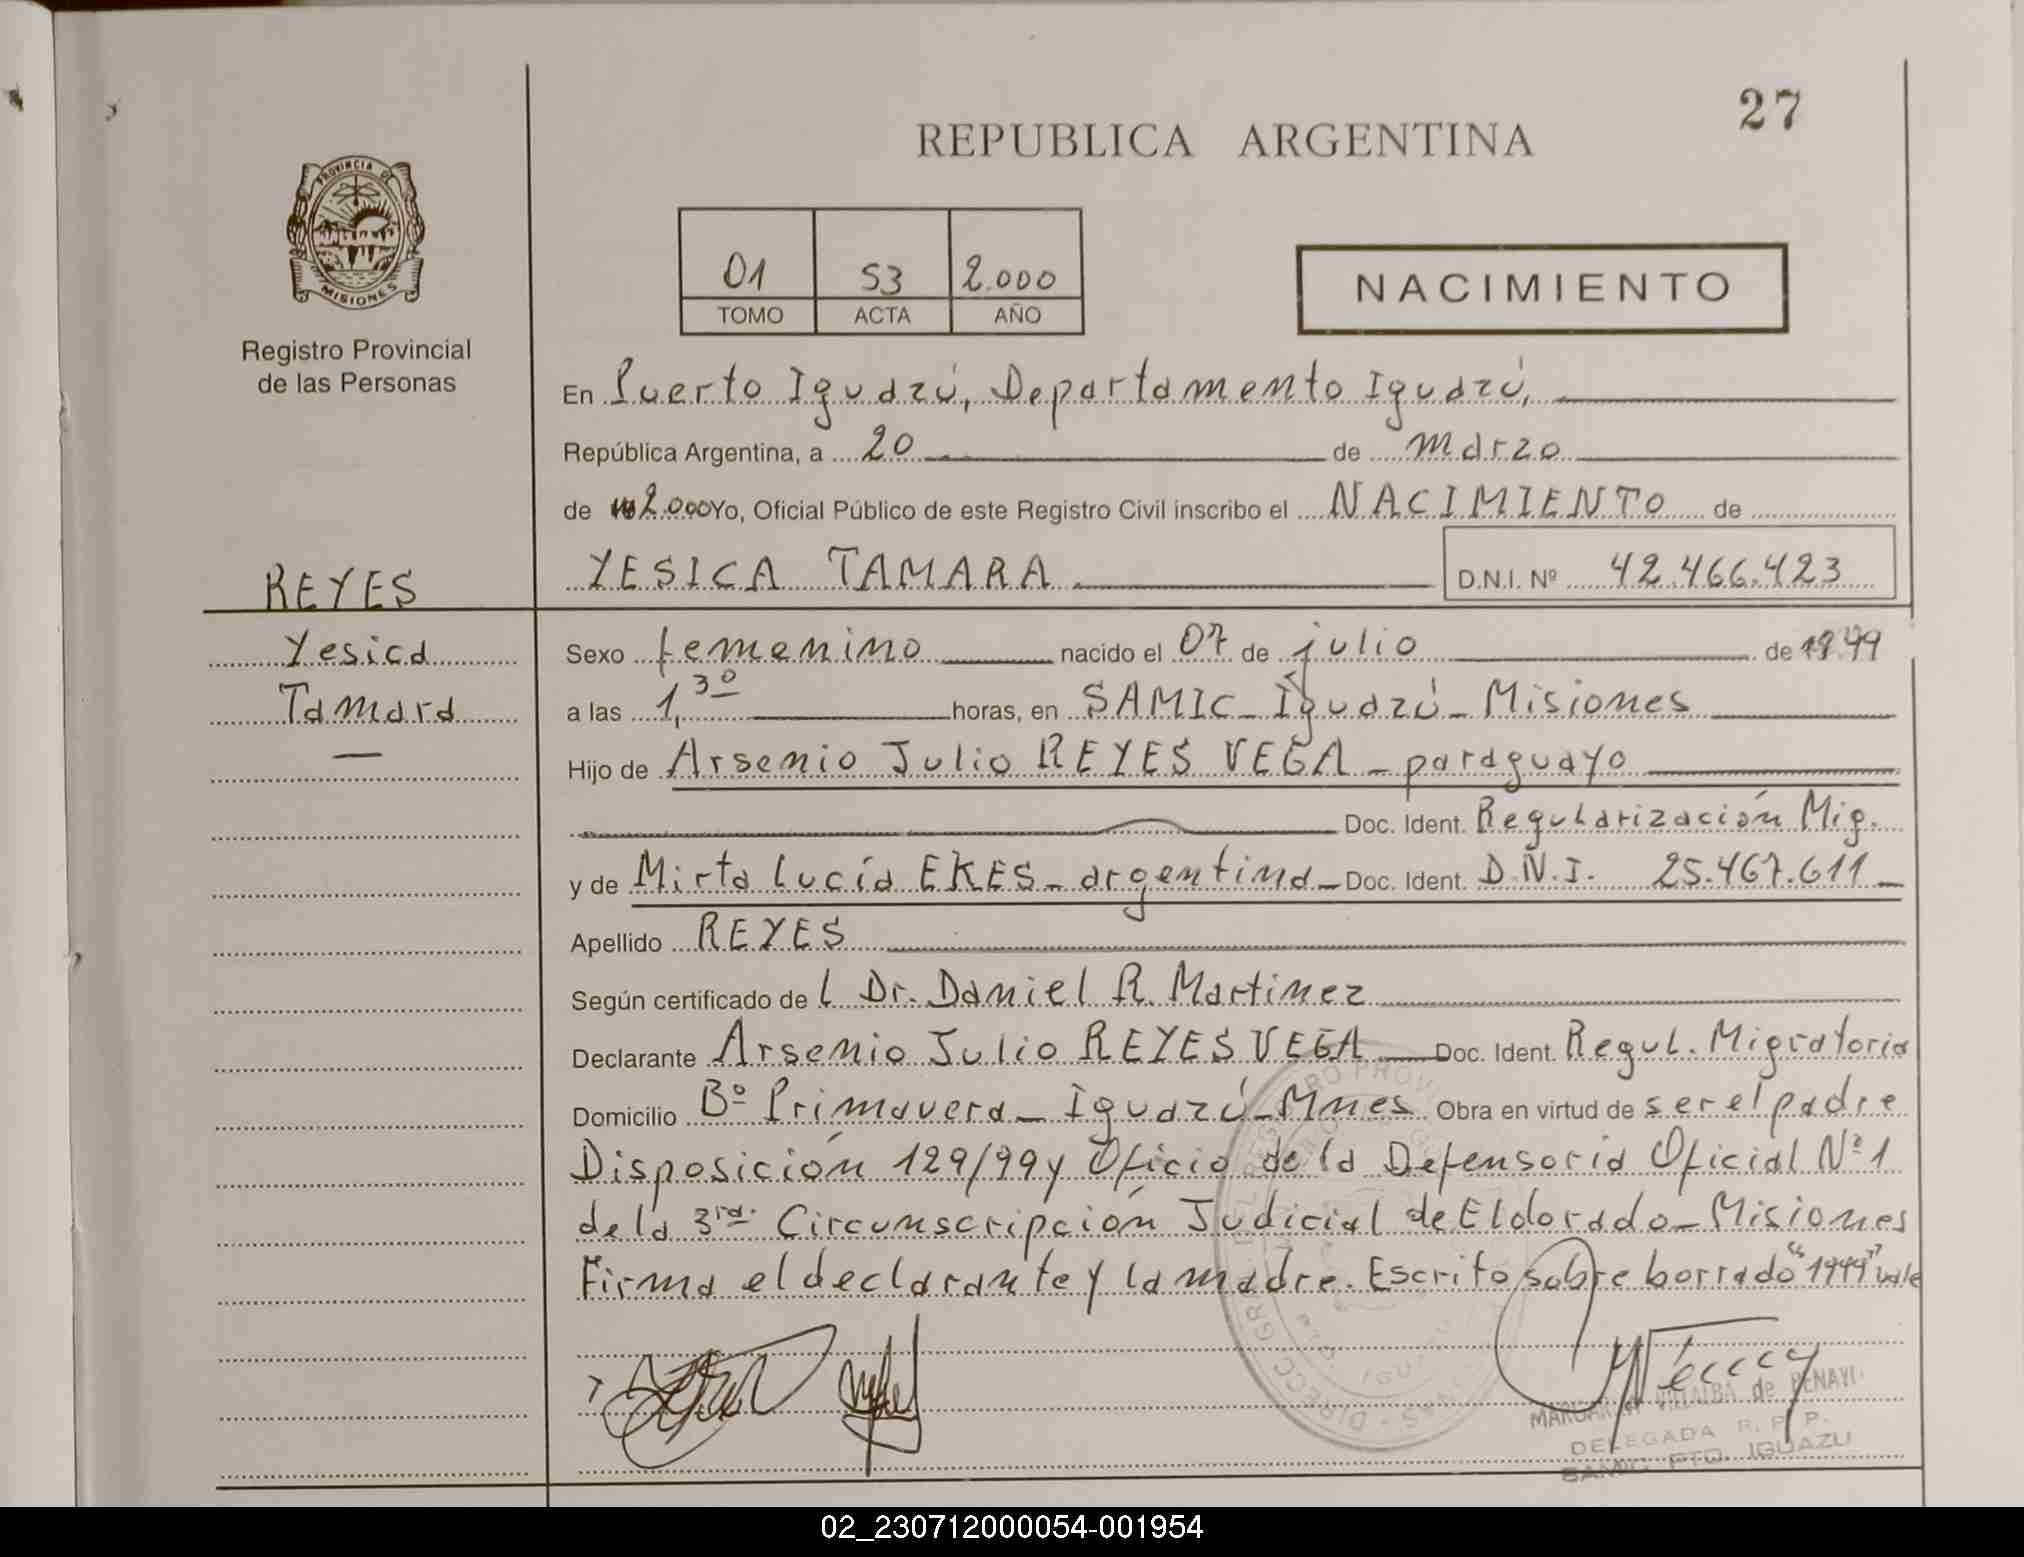 27
REPUBLICA ARGENTINA
PROVINCIA DE
MISIONES
Registro Provincial
de las Personas
01 53 2.000
TOMO ACTA AÑO
NACIMIENTO
En Puerto Iguazú, Departamento Iguazú,
República Argentina, a 20 de marzo
de 2.000 Yo, Oficial Público de este Registro Civil inscribo el NACIMIENTO de
YESICA TAMARA D.N.I. Nº 42.466.423
REYES
Yesica
Tamara
Sexo femenino nacido el 07 de julio de 1999
a las 1,3º horas, en SAMIC - Iguazú - Misiones
Hijo de Arsenio Julio REYES VEGA - paraguayo
Doc. Ident. Regularización Mig.
y de Mirta Lucía EKES - argentina - Doc. Ident. D.N.I. 25.467.611
Apellido REYES
Según certificado de l Dr. Daniel R. Martinez
Declarante Arsenio Julio REYES VEGA Doc. Ident. Regul. Migratoria
Domicilio Bº Primavera - Iguazú - Mnes Obra en virtud de ser el padre
Disposición 129/99 y Oficio de la Defensoria Oficial Nº 1
de la 3ra. Circunscripción Judicial de Eldorado - Misiones
Firma el declarante y la madre. Escrito sobre borrado "1999" vale
MARGARITA VILLALBA de
DELEGADA R. P. P.
SAMIC PTO. IGUAZU
02_230712000054-001954